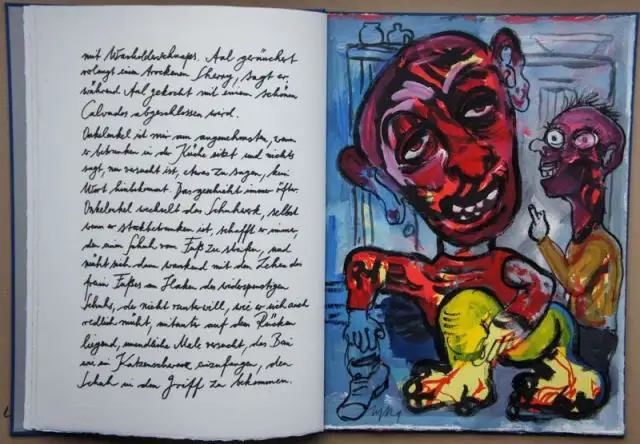 mit Wacholderschnaps. Aal geräuchert
verlangt einen trockenen Sherry, sagt er,
während Aal gekocht mit einem schönen
Calvados abgeschlossen wird.
Onkelonkel ist mir am angenehmsten, wenn
er betrunken in der Küche sitzt und nichts
sagt, nur versucht ist, etwas zu sagen, kein
Wort hinbekommt. Das geschieht immer öfter.
Onkelonkel wechselt das Schuhwerk, selbst
wenn er stockbetrunken ist, schafft er immer,
den einen Schuh vom Fuß zu streifen, und
müht sich dann wankend mit den Zehen des
freien Fußes am Hacken des widerspenstigen
Schuhs, der nicht runter will, wie er sich auch
redlich müht, mitunter auf dem Rücken
liegend, unendliche Male versucht, das Bein
wie ein Katzenschwanz einzufangen, den
Schuh in den Griff zu bekommen.